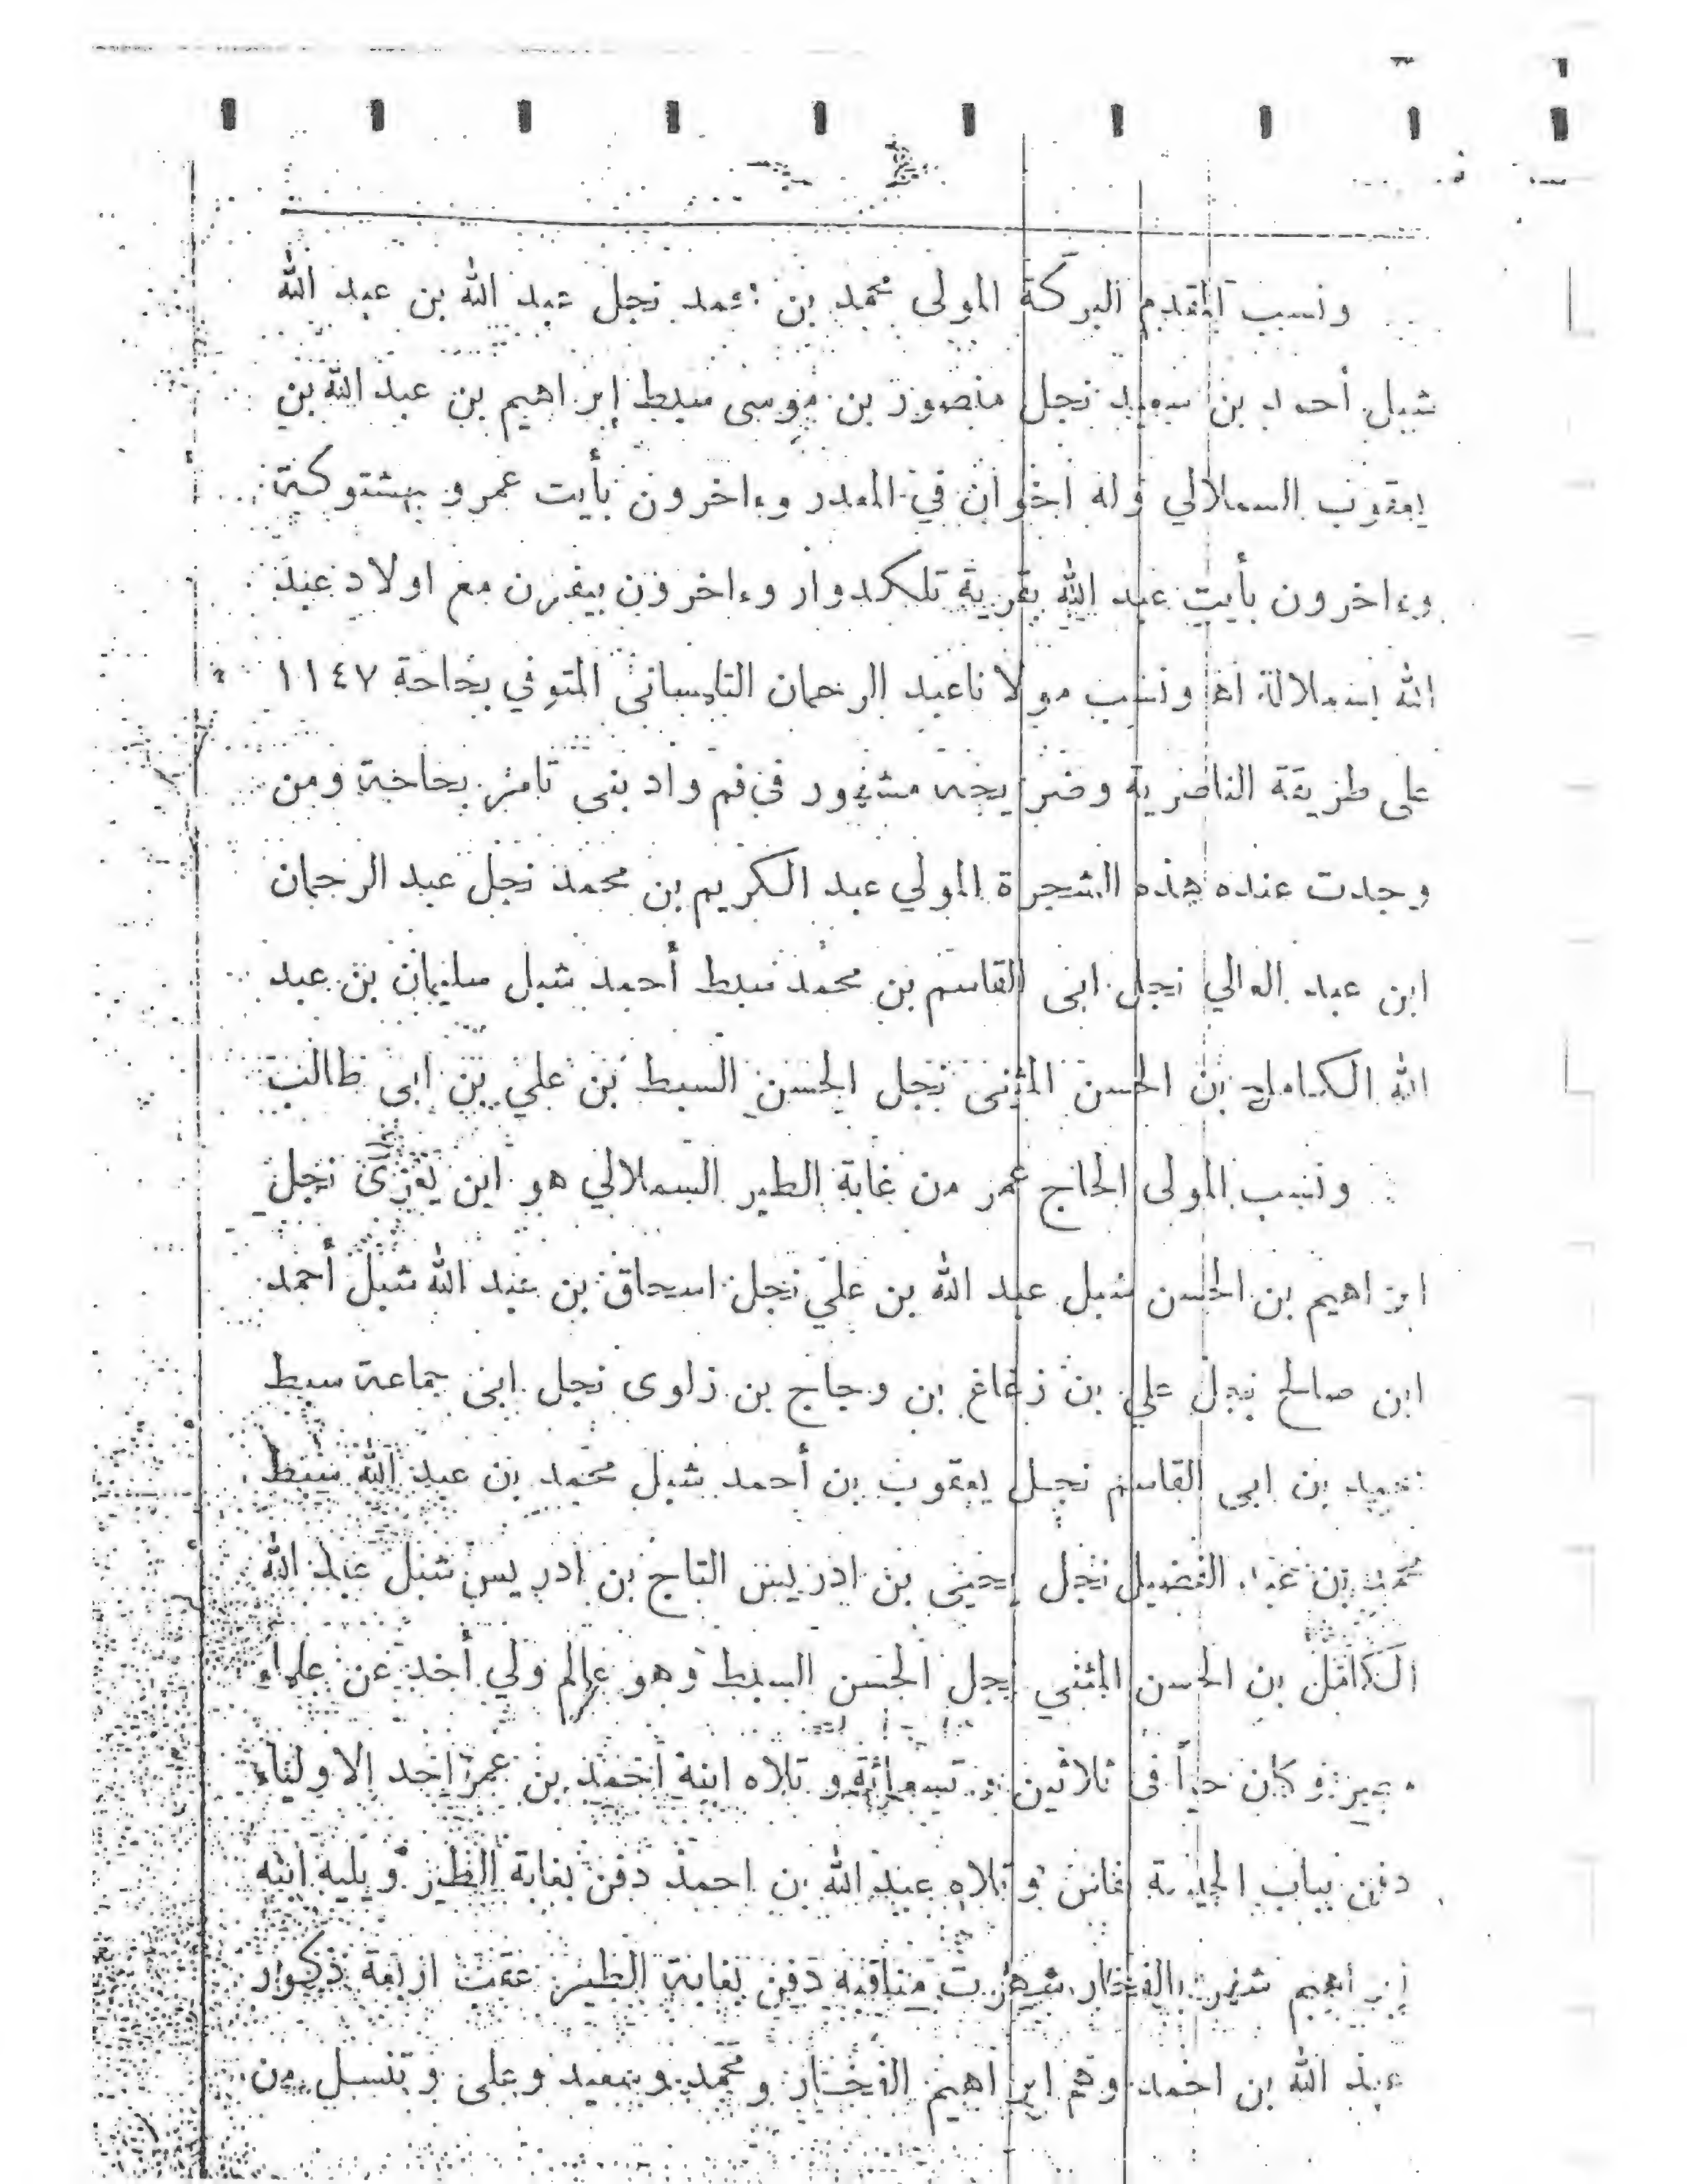 ونسب المقدم البركة المولى محمد بن محمد نجل عبد الله بن عبد الله
شبل أحمد بن سعيد نجل منصور بن موسى سبط إبراهيم بن عبد الله بن
يعقوب السملالي وله اخوان في المعدر وءاخرون بأيت عمرو بهشتوكة
وءاخرون بأيت عبد الله بقرية تلكدوار وءاخرون بيفرن مع اولاد عبد
الله بسملالة اه ونسب مولانا عبد الرحمان المتوفي بحاحة ١١٤٧
على طريقة الناصرية وضريحه مشهور في فم واد بنى تامر بحاحة ومن
وجدت عنده هذه الشجرة المولي عبد الكريم بن محمد نجل عبد الرحمان
ابن عبد العالي نجل ابى القاسم بن محمد سبط أحمد شبل سليمان بن عبد
الله الكامل بن الحسن المثنى نجل الحسن السبط بن علي بن ابى طالب
ونسب المولى الحاج عمر من غابة الطير السملالي هو ابن يعزى نجل
ابراهيم بن الحسن شبل عبد الله بن علي نجل اسحاق بن عبد الله شبل أحمد
ابن صالح نجل علي بن زغاغ بن وجاج بن زاوى نجل ابى جماعة سبط
سعيد بن ابى القاسم نجل يعقوب بن أحمد شبل محمد بن عبد الله سبط
محمد بن عبد الفضيل نجل يحيى بن ادريس التاج بن ادريس شبل عبد الله
الكامل بن الحسن المثني نجل الحسن السبط وهو عالم ولي أخذ عن علماء
وكان حيا في ثلاثين و تسعمائة و تلاه ابنه أحمد بن عمر احد الاولياء
دفن بباب الجيسة بفاس وتلاه عبد الله بن احمد دفن بغابة الطير ويليه ابنه
إبراهيم شهير بالفخار شهرت مناقبه دفن بغابة الطير عقب اربعة ذكور
عبد الله بن احمد وهم ابراهيم الفخار ومحمد وسعيد وعلى وتنسل من